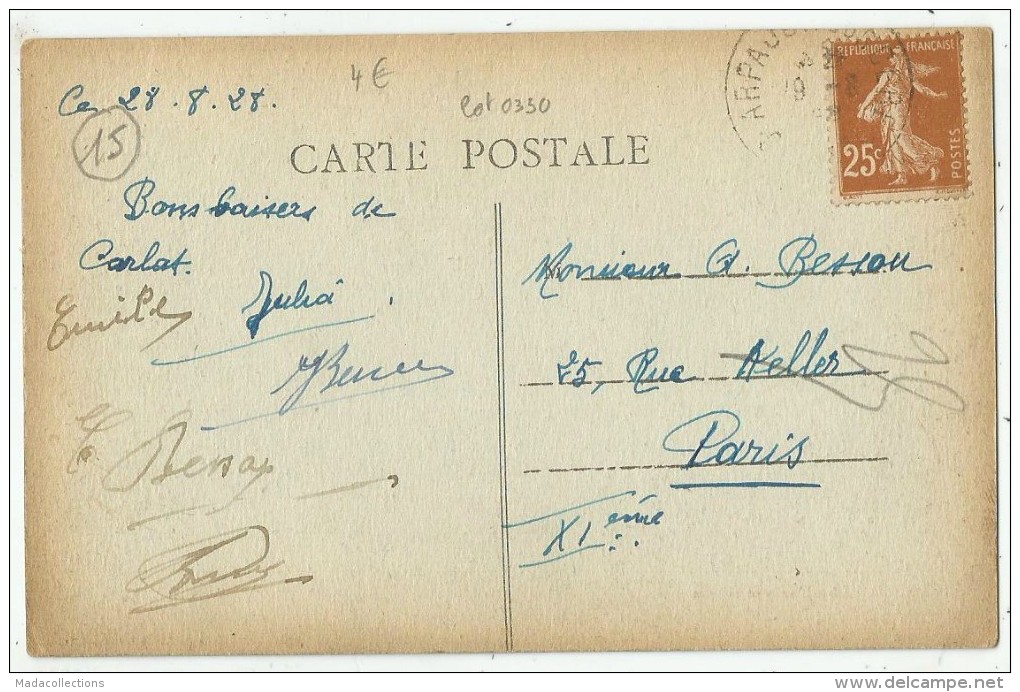 Ce 28.8.28.
4 €
Lot 0350
15
CARTE POSTALE
ARPAJON
RÉPUBLIQUE FRANÇAISE
25c
POSTES
Bons baisers de
Carlat.
Julia
Monsieur A. Besson
25, Rue Keller
Paris
XIème
Madacollections
www.delcampe.net